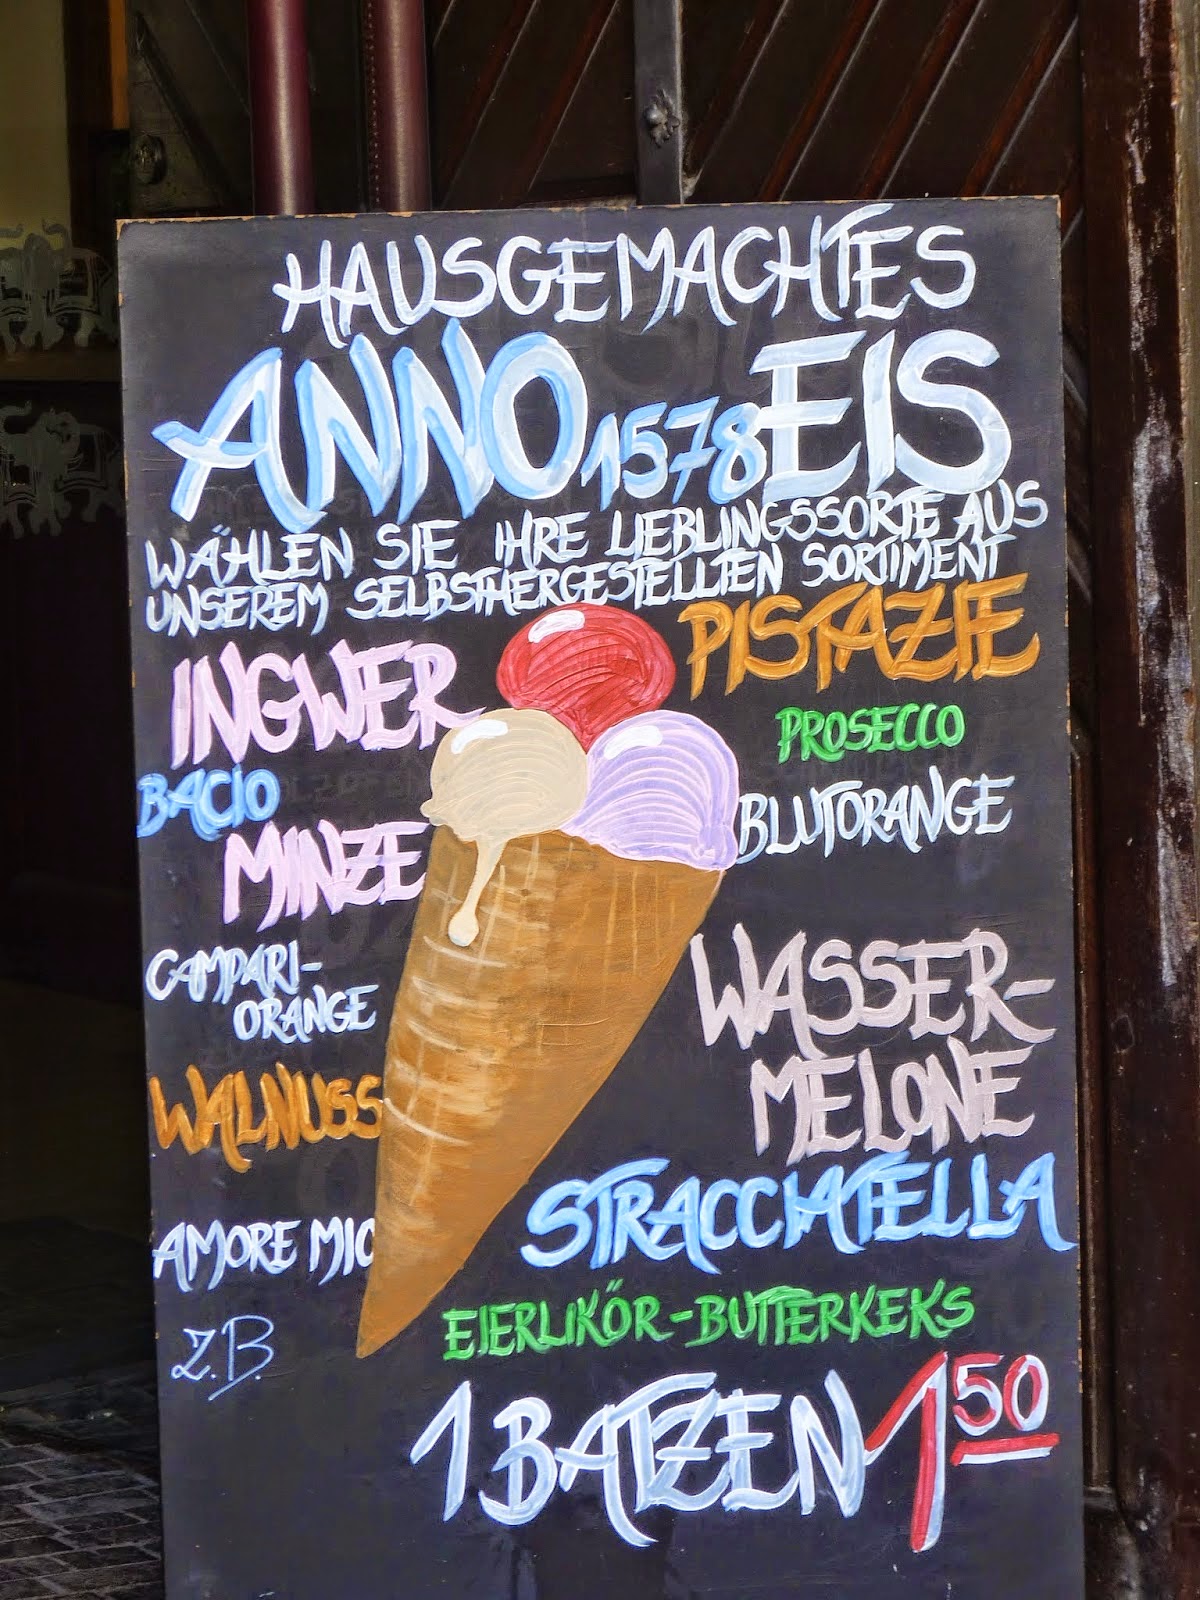 HAUSGEMACHTES
ANNO 1578 EIS
WÄHLEN SIE IHRE LIEBLINGSSORTE AUS
UNSEREM SELBSTHERGESTELLTEN SORTIMENT
PISTAZIE
INGWER
PROSECCO
BACIO
BLUTORANGE
MINZE
CAMPARI-
ORANGE
WASSER-
MELONE
WALNUSS
STRACCIATELLA
AMORE MIO
EIERLIKÖR-BUTTERKEKS
Z.B.
1 BATZEN 1 50